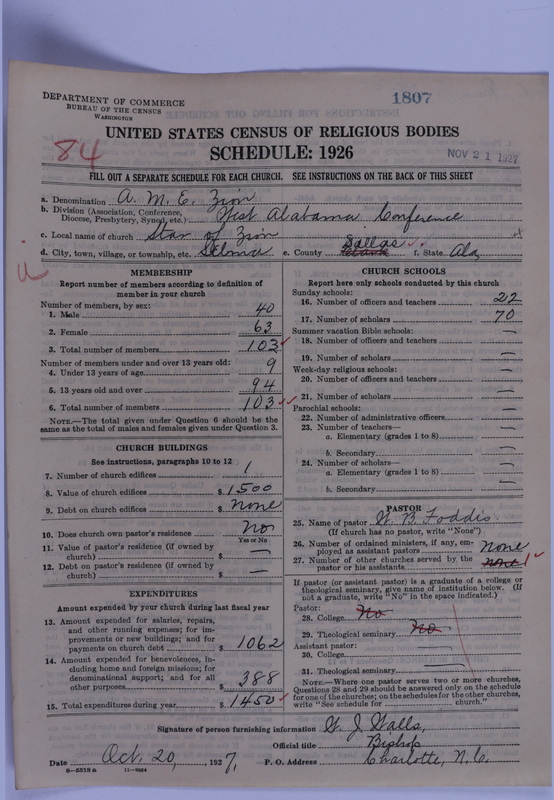 DEPARTMENT OF COMMERCE
BUREAU OF THE CENSUS
WASHINGTON
1807
UNITED STATES CENSUS OF RELIGIOUS BODIES
84
SCHEDULE: 1926
NOV 21 1927
FILL OUT A SEPARATE SCHEDULE FOR EACH CHURCH. SEE INSTRUCTIONS ON THE BACK OF THIS SHEET
a. Denomination A. M. E. Zion
b. Division (Association, Conference, Diocese, Presbytery, Synod, etc.) West Alabama Conference
c. Local name of church Star of Zion
d. City, town, village, or township, etc. Selma e. County Dallas f. State Ala
MEMBERSHIP
Report number of members according to definition of
member in your church
Number of members, by sex:
1. Male 40
2. Female 63
3. Total number of members 103
Number of members under and over 13 years old:
4. Under 13 years of age 9
5. 13 years old and over 94
6. Total number of members 103
NOTE.—The total given under Question 6 should be
same as the total of males and females given under Question 3.
CHURCH BUILDINGS
See instructions, paragraphs 10 to 12
7. Number of church edifices 1
8. Value of church edifices $ 1500
9. Debt on church edifices $ None
10. Does church own pastor's residence? No
Yes or No
11. Value of pastor's residence (if owned by
church) $ —
12. Debt on pastor's residence (if owned by
church) $ —
EXPENDITURES
Amount expended by your church during last fiscal year
13. Amount expended for salaries, repairs,
and other running expenses; for im-
provements or new buildings; and for
payments on church debt $ 1062
14. Amount expended for benevolences, in-
cluding home and foreign missions; for
denominational support; and for all
other purposes $ 388
15. Total expenditures during year $ 1450
CHURCH SCHOOLS
Report here only schools conducted by this church
Sunday schools:
16. Number of officers and teachers
17. Number of scholars 70
Summer vacation Bible schools:
18. Number of officers and teachers —
19. Number of scholars —
Week-day religious schools:
20. Number of officers and teachers —
21. Number of scholars —
Parochial schools:
22. Number of administrative officers —
23. Number of teachers—
a. Elementary (grades 1 to 8) —
b. Secondary —
24. Number of scholars—
a. Elementary (grades 1 to 8) —
b. Secondary —
PASTOR
25. Name of pastor W. B. Foddis
(If church has no pastor, write "None")
26. Number of ordained ministers, if any, em-
ployed as assistant pastors None
27. Number of other churches served by the
pastor or his assistants None 1
If pastor (or assistant pastor) is a graduate of a college or
theological seminary, give name of institution below. (If
not a graduate, write "No" in the space indicated.)
Pastor:
28. College No
29. Theological seminary No
Assistant pastor:
30. College —
31. Theological seminary —
NOTE.—Where one pastor serves two or more churches,
Questions 28 and 29 should be answered only on the schedule
for one of the churches; on the schedules for the other churches,
write "See schedule for church."
Signature of person furnishing information W. J. Walls,
Official title Bishop
Date Oct. 20, 1927. P. O. Address Charlotte, N. C.
8—5518 a 11—9084